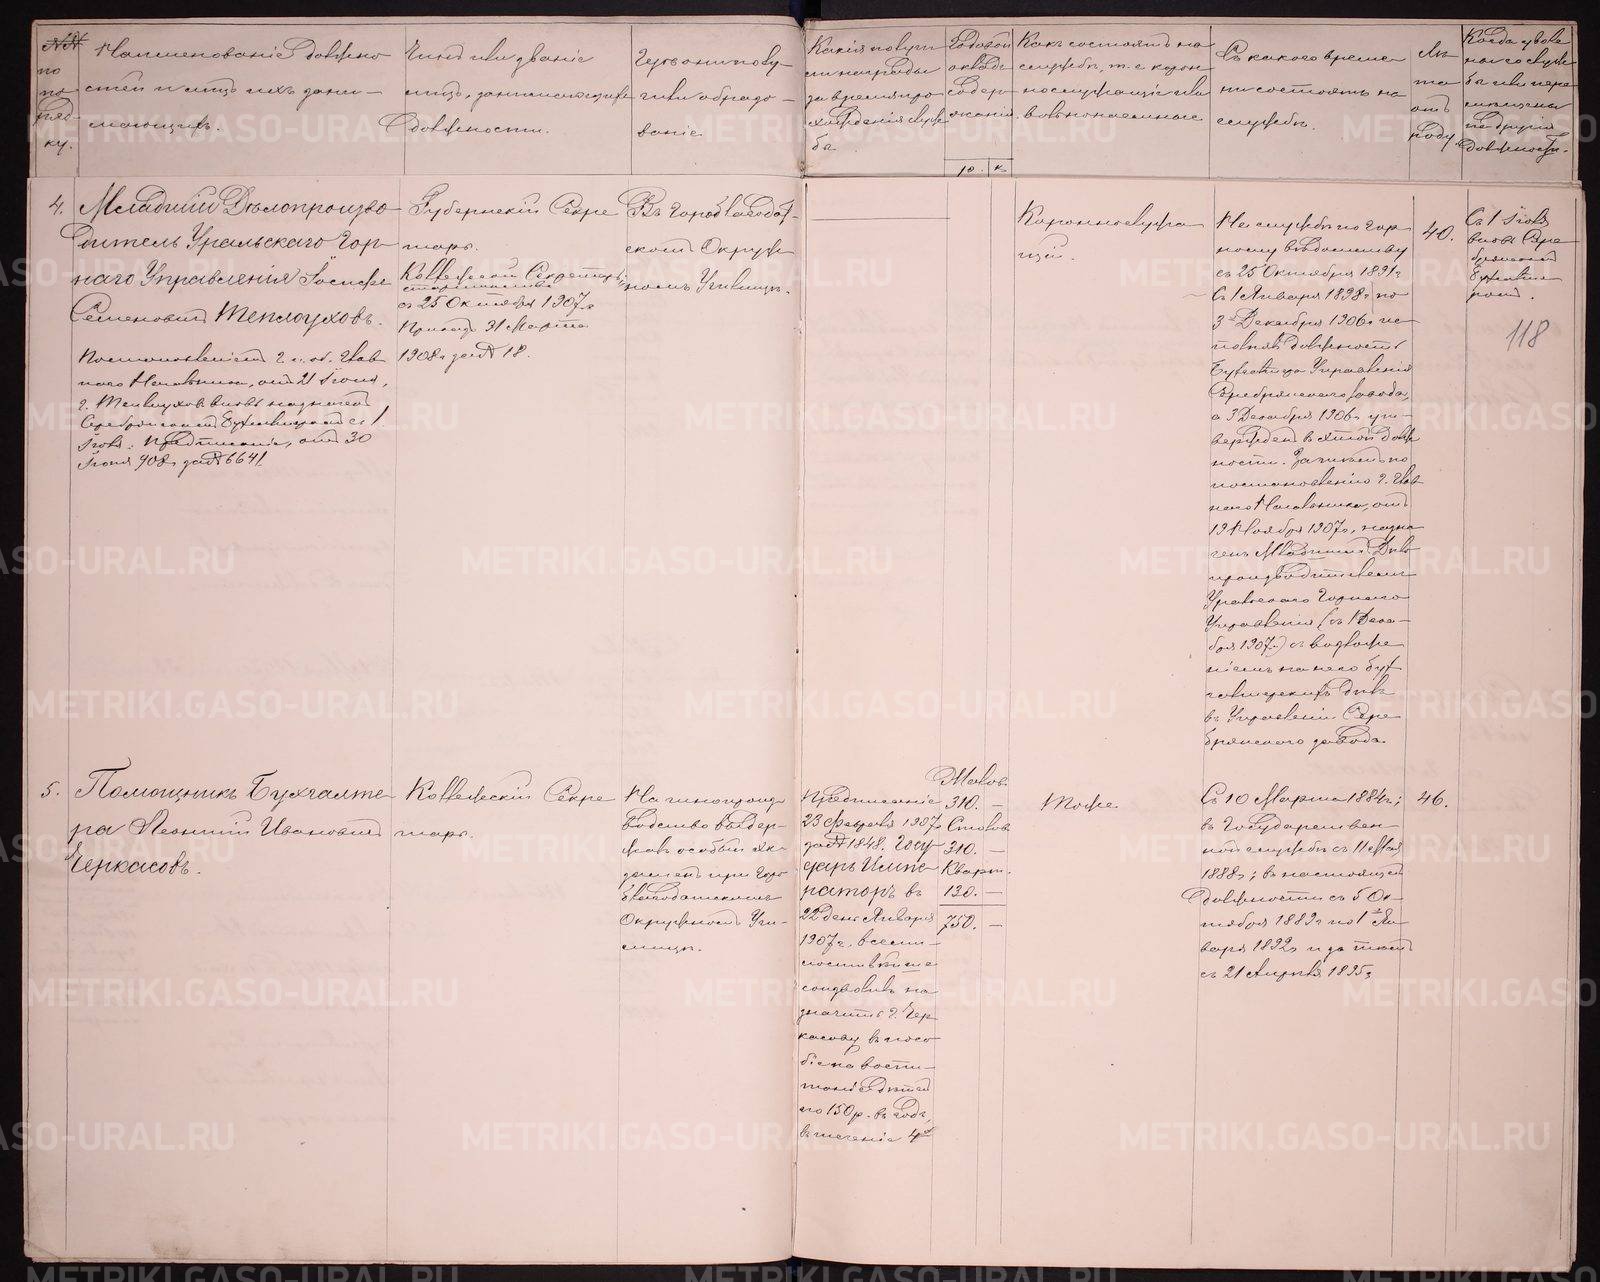 NN
по
по
ряд-
ку.
Наименованіе должно
стей и лицъ ихъ зани-
мающихъ.
Чинъ или званіе
лица, занимающаго
должность.
Гдѣ они полу-
чили образо-
ваніе
Какія получи
ли награды
за время про
хожденія служ
бы
Годовой
окладъ
содер
жанія.
р. к.
Какъ состоятъ на
службѣ, т. е. корон
нослужащіе или
вольнонаемные
Съ какого време-
ни состоятъ на
службѣ.
Лѣ
та
отъ
роду.
Когда уволе
ны со служ
бы или пере
мѣщены
на другія
должности.
4.
Младшій Дѣлопроизво
дитель Уральскаго Гор
наго Управленія Іосифъ
Семеновичъ Теплоуховъ.
Постановленіемъ Г. и. об. Глав
наго Начальника, отъ 21 Іюня,
г. Теплоуховъ вновь назначенъ
Серебрянскимъ Бухгалтеромъ съ 1
Іюля. Предписаніе, отъ 30
Іюня 908г. за № 6641.
Губернскій Секре
тарь.
Коллежскій Секретарь,
со старшинствомъ
съ 25 Октября 1907 г.
Приказъ 31 Марта
1908 г. за № 18.
Въ Горобла­годат-
скомъ Окруж
номъ Училищѣ.
Короннослужа
щій.
На службѣ по гор
ному вѣдомству
съ 25 Октября 1891 г.
Съ 1 Января 1898 г. по
3 Декабря 1906 г. ис
полнялъ должность
Бухгалтера Управленія
Серебрянскаго завода,
а 3 Декабря 1906 г. ут-
вержденъ въ этой долж
ности. Затѣмъ по
постановленію г. Глав
наго Начальника, отъ
19 Ноября 1907 г., назна
ченъ Младшимъ Дѣло
производителемъ
Уральскаго Горнаго
Управленія (съ 1 Дека-
бря 1907 г.) съ возложе
ніемъ на него бух
галтерскихъ дѣлъ
въ Управленіи Сере
брянскаго завода.
40.
Съ 1 Іюля
вновь Сере
брянскій
Бухгалте
ромъ.
118
5.
Помощникъ Бухгалте
ра Леонтій Ивановичъ
Черкасовъ.
Коллежскій Секре
тарь.
На чинопроиз
водство выдер-
жалъ особый эк
заменъ при Горо
благодатскомъ
Окружномъ Учи-
лищѣ.
Предписаніе
23 Февраля 1907 г.
за № 1848. Госу
дарь Импе
раторъ въ
22 день Января
1907 г. всеми-
лостивѣйше
соизволилъ на
значить г. Чер
касову въ посо
біе на воспи-
таніе дѣтей
по 150 р. въ годъ,
въ теченіе 4х
Жалов.
310. —
Столов.
310. —
Кварт.
130. —
750. —
Тоже.
Съ 10 Марта 1884 г.;
въ Государствен
ной службѣ съ 11 Мая
1888 г.; въ настоящей
должности съ 5 Ок-
тября 1889 г. по 1 Ян-
варя 1892 г. и затѣмъ
съ 21 Апрѣля 1895 г.
46.
METRIKI.GASO-URAL.RU